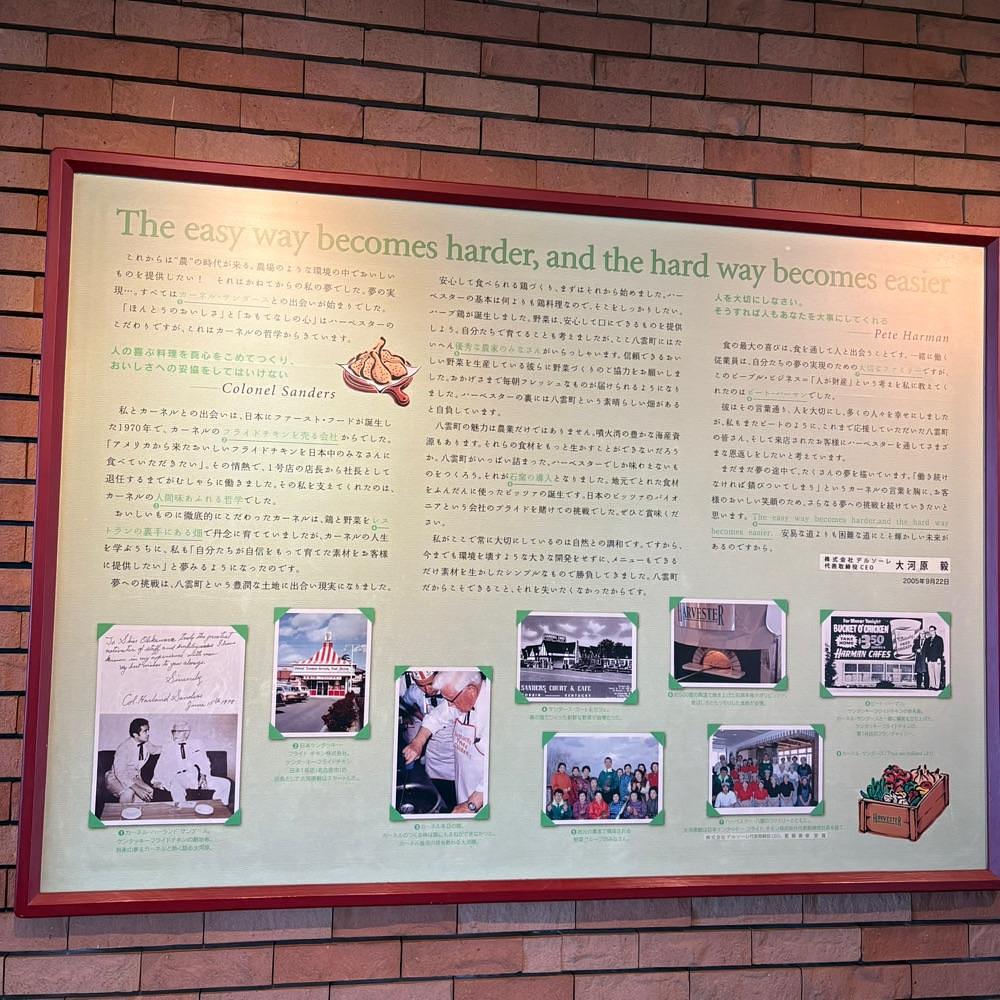 The easy way becomes harder, and the hard way becomes easier
これからは“農”の時代が来る。農場のような環境の中でおいしい
ものを提供したい！　それはかねてからの私の夢でした。夢の実
現…。すべてはカーネル・サンダースとの出会いが始まりでした。
「ほんとうのおいしさ」と「おもてなしの心」はハーベスターの
こだわりですが、これはカーネルの哲学からきています。
人の喜ぶ料理を真心をこめてつくり、
おいしさへの妥協をしてはいけない
Colonel Sanders
私とカーネルとの出会いは、日本にファースト・フードが誕生し
た1970年で、カーネルのフライドチキンを売る会社からでした。
「アメリカから来たおいしいフライドチキンを日本中のみなさんに
食べていただきたい」。その情熱で、1号店の店長から社長として
退任するまでがむしゃらに働きました。その私を支えてくれたのは、
カーネルの人間味あふれる哲学でした。
おいしいものに徹底的にこだわったカーネルは、鶏と野菜をレス
トランの裏手にある畑で丹念に育てていましたが、カーネルの人生
を学ぶうちに、私も「自分たちが自信をもって育てた素材をお客様
に提供したい」と夢みるようになったのです。
夢への挑戦は、八雲町という豊潤な土地に出会い現実になりました。
安心して食べられる鶏づくり、まずはそれから始めました。ハー
ベスターの基本は何よりも鶏料理なので、そこをしっかりしたい。
ハーブ鶏が誕生しました。野菜は、安心して口にできるものを提供
しよう。自分たちで育てることも考えましたが、ここ八雲町にはた
いへん優秀な農家のみなさんがいらっしゃいます。信頼できるおい
しい野菜を生産している彼らに野菜づくりのご協力をお願いしま
した。おかげさまで毎朝フレッシュなものが届けられるようになり
ました。ハーベスターの裏には八雲町という素晴らしい畑がある
と自負しています。
八雲町の魅力は農業だけではありません。噴火湾の豊かな海産資
源もあります。それらの食材をもっと生かすことができないだろう
か。八雲町がいっぱい詰まった、ハーベスターでしか味わえないも
のをつくろう。それが石窯の導入となりました。地元でとれた食材
をふんだんに使ったピッツァの誕生です。日本のピッツァのパイオ
ニアという会社のプライドを賭けての挑戦でした。ぜひご賞味くだ
さい。
私がここで常に大切にしているのは自然との調和です。ですから、
今までも環境を壊すような大きな開発をせずに、メニューもできる
だけ素材を生かしたシンプルなもので勝負してきました。八雲町
だからこそできること、それを失いたくなかったからです。
人を大切にしなさい。
そうすれば人もあなたを大事にしてくれる
Pete Harman
食の最大の喜びは、食を通して人と出会うことです。一緒に働く
従業員は、自分たちの夢の実現のための大切なファミリーですが、
このピープル・ビジネス＝「人が財産」という考えを私に教えてく
れたのはピート・ハーマンでした。
彼はその言葉通り、人を大切にし、多くの人々を幸せにしました
が、私もまたピートのように、これまで応援していただいた八雲町
の皆さん、そして来店されたお客様にハーベスターを通してさまざ
まな恩返しをしたいと考えています。
まだまだ夢の途中で、たくさんの夢を描いています。「働き続け
なければ錆びついてしまう」というカーネルの言葉を胸に、お客
様のおいしい笑顔のため、さらなる夢への挑戦を続けていきたいと
思います。The easy way becomes harder,and the hard way
becomes easier. 安易な道よりも困難な道にこそ輝かしい未来が
あるのですから。
株式会社 デルソーレ
代表取締役CEO 大河原 毅
2005年9月22日
Sincerely
Col. Harland Sanders
HARVESTER
SANDERS COURT & CAFE
KENTUCKY
BUCKET O'CHICKEN
3.50
HARMAN CAFES
❶カーネル・ハーランド・サンダース。
ケンタッキーフライドチキンの創始者。
❷日本ケンタッキー・
フライド チキン株式会社。
ケンタッキーフライドチキン
日本1号店（名古屋市）の
店長として大河原毅はスタートした。
❹サンダース・コート＆カフェ。
❻ピート・ハーマン。
HARVESTER